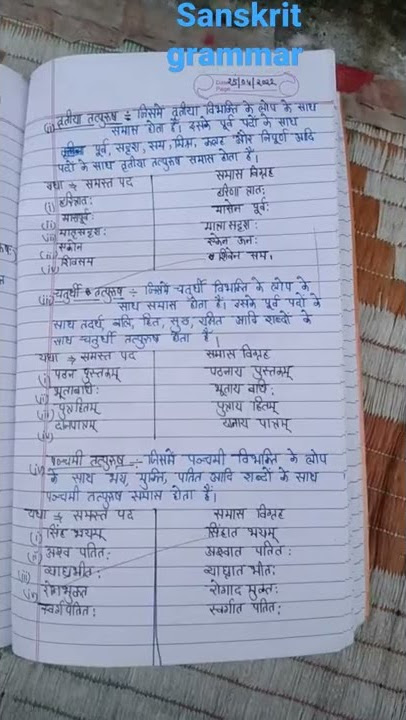 Sanskrit
grammar
Date 25/04/2022
Page
(ii) तृतीया तत्पुरुष ÷ जिसमे तृतीया विभक्ति के लोप के साथ
समास होता है। इसके पूर्व पदो के साथ
पूर्व, सदृश, सम, मिश्र, कलह और निपूर्ण आदि
पदो के साथ तृतीया तत्पुरुष समास होता है।
यथा ⇒ समस्त पद समास विग्रह
(i) हरित्रातः हरिणा त्रातः
(ii) मासपूर्वः मासेन पूर्वः
(iii) मातृसदृशः मात्रा सदृशः
(iv) एकोन एकेन ऊनः
शिवसम शिवेन सम।
(iii) चतुर्थी तत्पुरुष ÷ जिसमे चतुर्थी विभक्ति के लोप के
साथ समास होता है। इसके पूर्व पदो के
साथ तदर्थ, बलि, हित, सुख, रक्षित आदि शब्दों के
साथ चतुर्थी तत्पुरुष होता है।
यथा ⇒ समस्त पद समास विग्रह
(i) पठन पुस्तकम् पठनाय पुस्तकम्
(ii) भूतबलिः भूताय बलिः
(iii) पुत्रहितम् पुत्राय हितम्
(iv) दानपात्रम् दानाय पात्रम्
(iv) पञ्चमी तत्पुरुष ÷ जिसमे पञ्चमी विभक्ति के लोप
के साथ भय, मुक्ति, पतित आदि शब्दों के साथ
पञ्चमी तत्पुरुष समास होता है।
यथा ⇒ समस्त पद समास विग्रह
(i) सिंह भयम् सिंहात भयम्
(ii) अश्व पतितः अश्वात पतितः
(iii) व्याघ्रभीतः व्याघ्रात भीतः
(iv) रोगमुक्त रोगाद मुक्तः
स्वर्गपतितः स्वर्गात पतितः